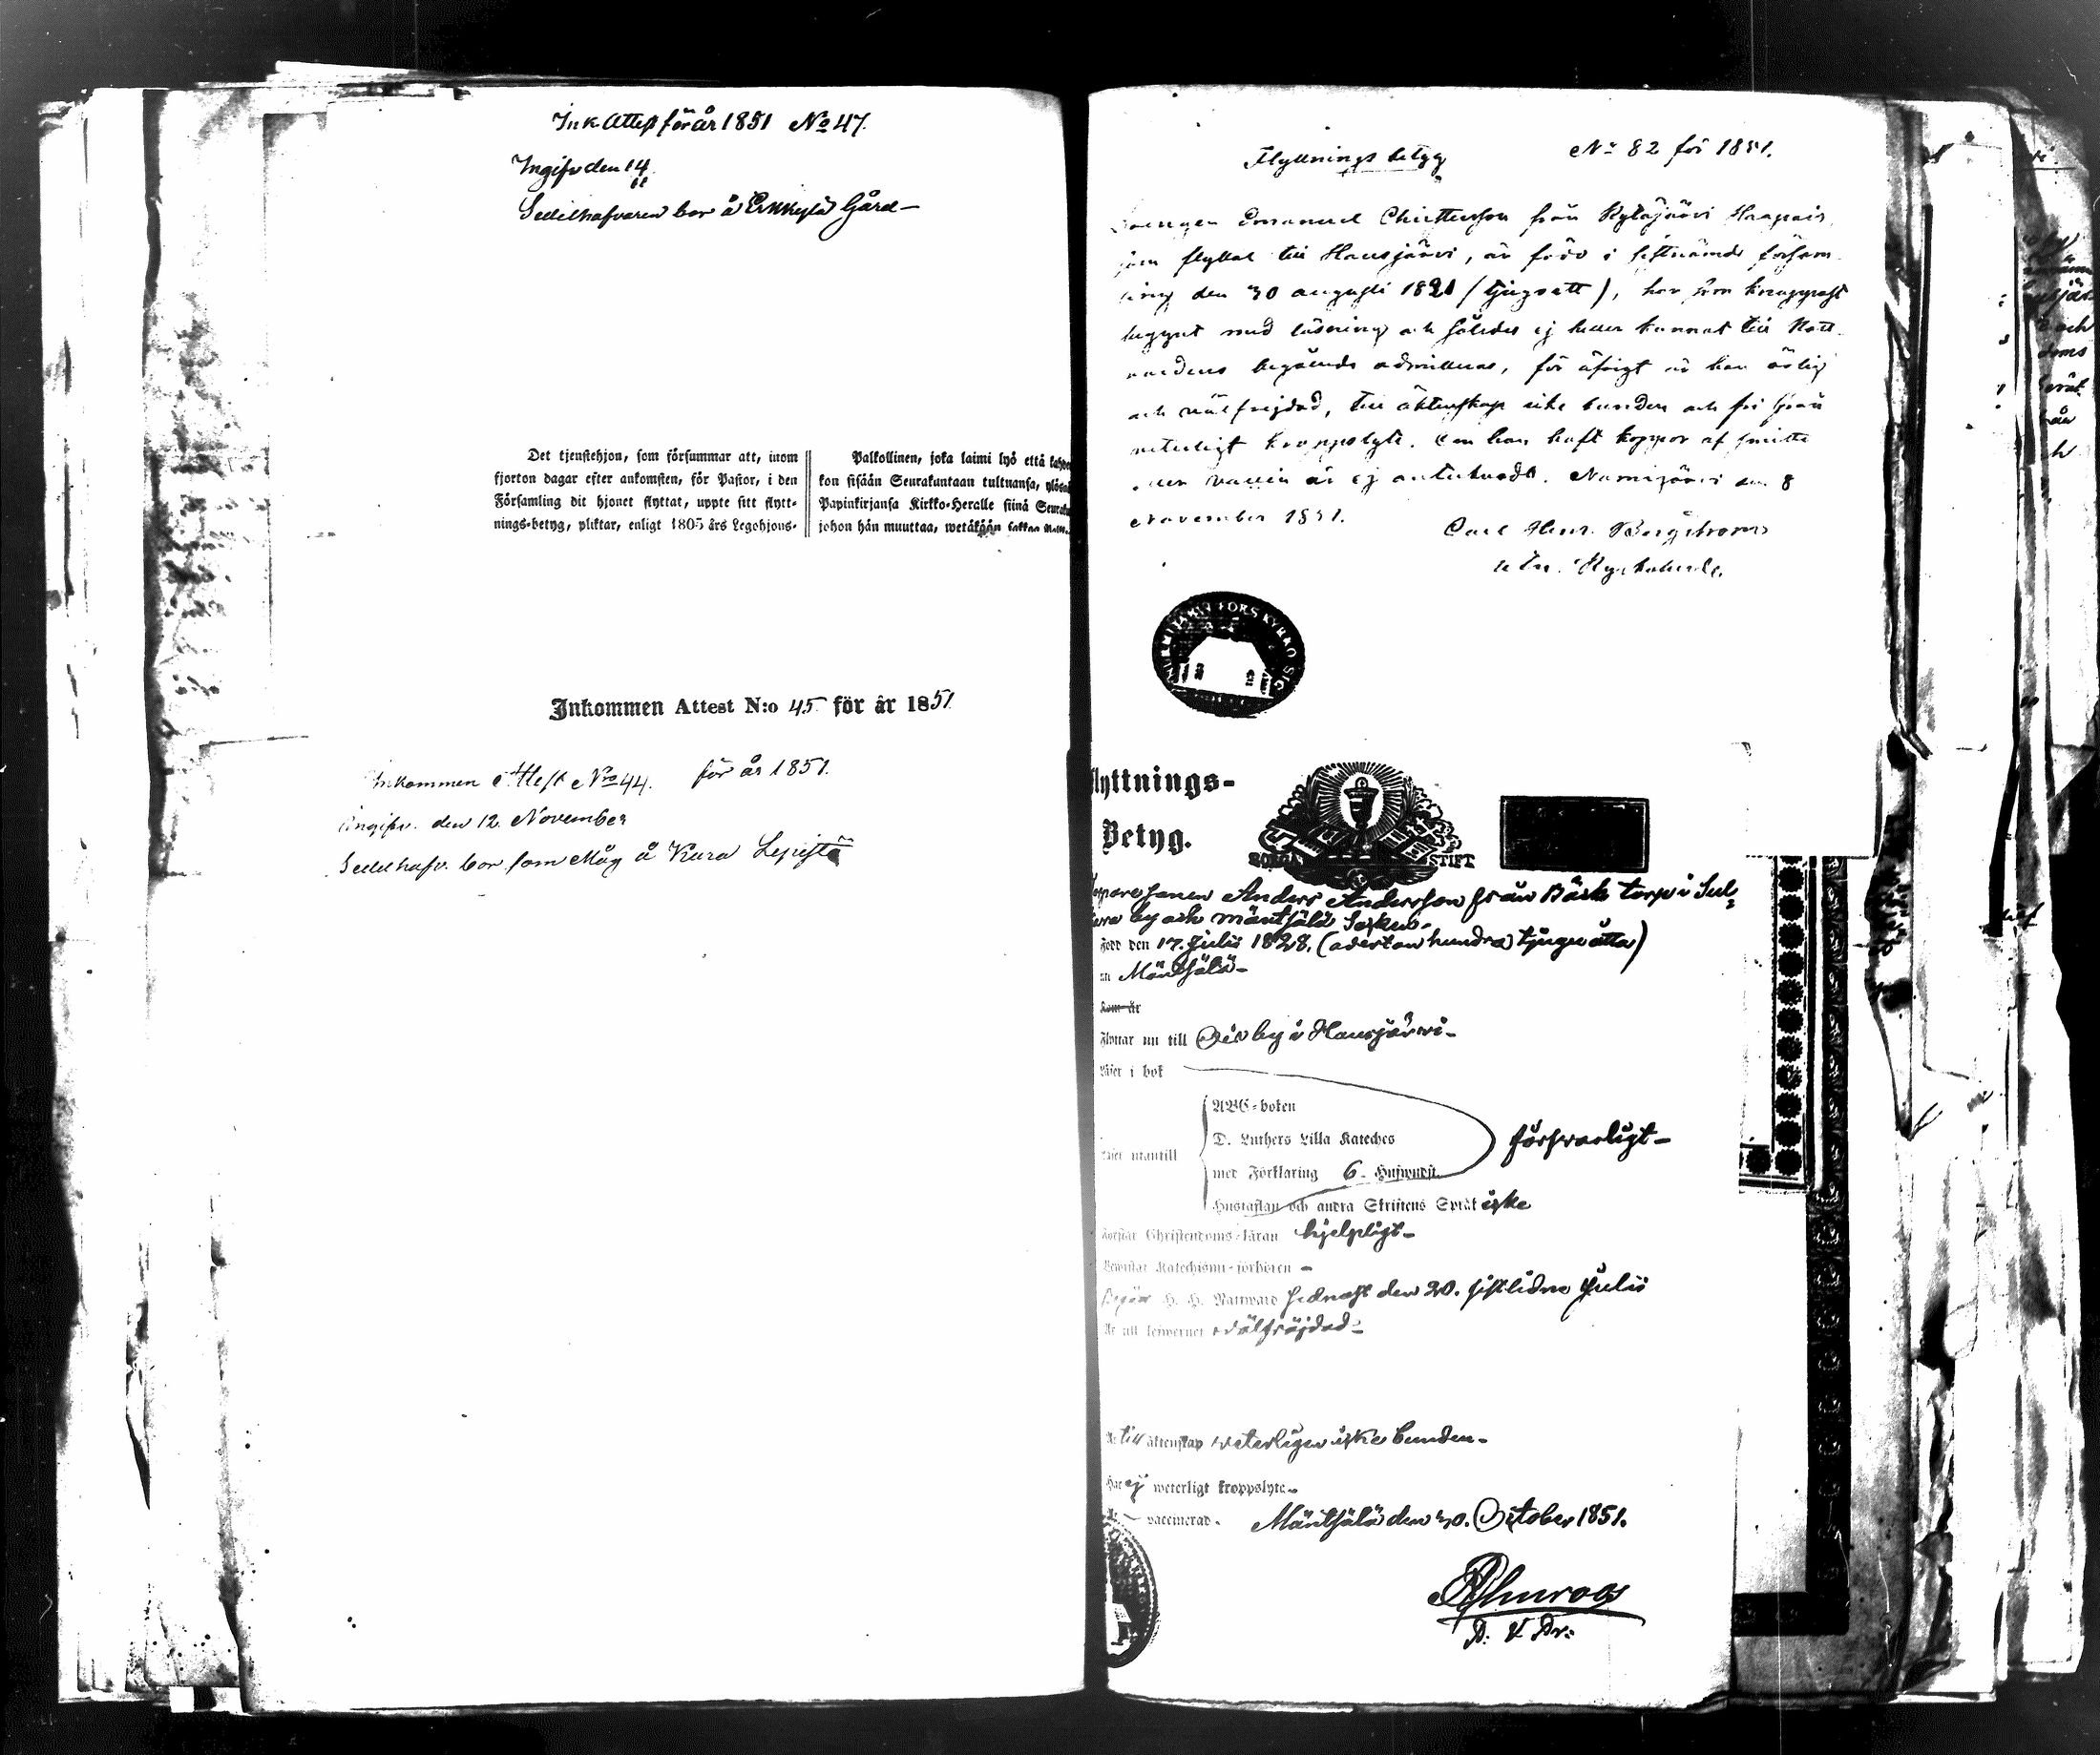 Ink. Attest för år 1851 No 47.
Ingifv den 14
11
Sedelhafvaren bor å Erkkylä Gård—
Det tjenstehjon, som försummar att, inom
fjorton dagar efter ankomsten, för Pastor, i den
Församling dit hjonet flyttat, uppte sitt flytt-
nings-betyg, pliktar, enligt 1805 års Legohjons-
Palkollinen, joka laimi lyö että
kon sisään Seurakuntaan tultuansa,
Papinkirjansa Kirkko-Heralle siinä
johon hän muuttaa, wetäkään
Inkommen Attest N:o 45 för år 1851
Inkommen Attest No 44. för år 1851.
ingifv. den 12 November
Sedelhafv. bor som Måg å Kara Lepistä
Flyttnings betyg No 82 för 1851.
Drengen Emanuel Christersson från Kytäjärvi Haapais
som flyttat till Hausjärvi, är född i sistnämde försam-
ling den 30 augusti 1821 (tjugoett), har som knappast
begynt med läsning och således ej heller kunnat till Natt-
vardens begående admitteras, för öfrigt är han ärlig
och välfrejdad, till äktenskap icke bunden och fri från
veterligt kroppslyte. Om han haft koppor af smitta
eller vaccin är ej antecknadt. Nurmijärvi den 8
November 1851.
Carl Henr. Bergström
FORS KYRKO SIG
Flyttnings-
Betyg.
BORGÅ STIFT
Anders Andersson från Bäck torp i Sul-
by och Mäntsälä Socken.
Född den 17. Julii 1828. (aderton hundra tjugu åtta)
i Mäntsälä—
Kom år
Flyttar nu till Ois by i Hausjärvi—
Läser i bok
ABC-boken
D. Luthers Lilla Kateches
Läser utantill
med Förklaring 6.
försvarligt—
Hustaflan och andra Skriftens Språk icke
Förstår Christendoms-läran hjelpligt—
Bewistat Katechismi-förhören —
Begått H. H. Nattward sednast den 20. sistlidne Julii
Är till lefwernet välfräjdad—
Är till äktenskap veterligen icke bunden—
Har ej weterligt kroppslyte—
Är — vaccinerad.
Mäntsälä den 30. October 1851.